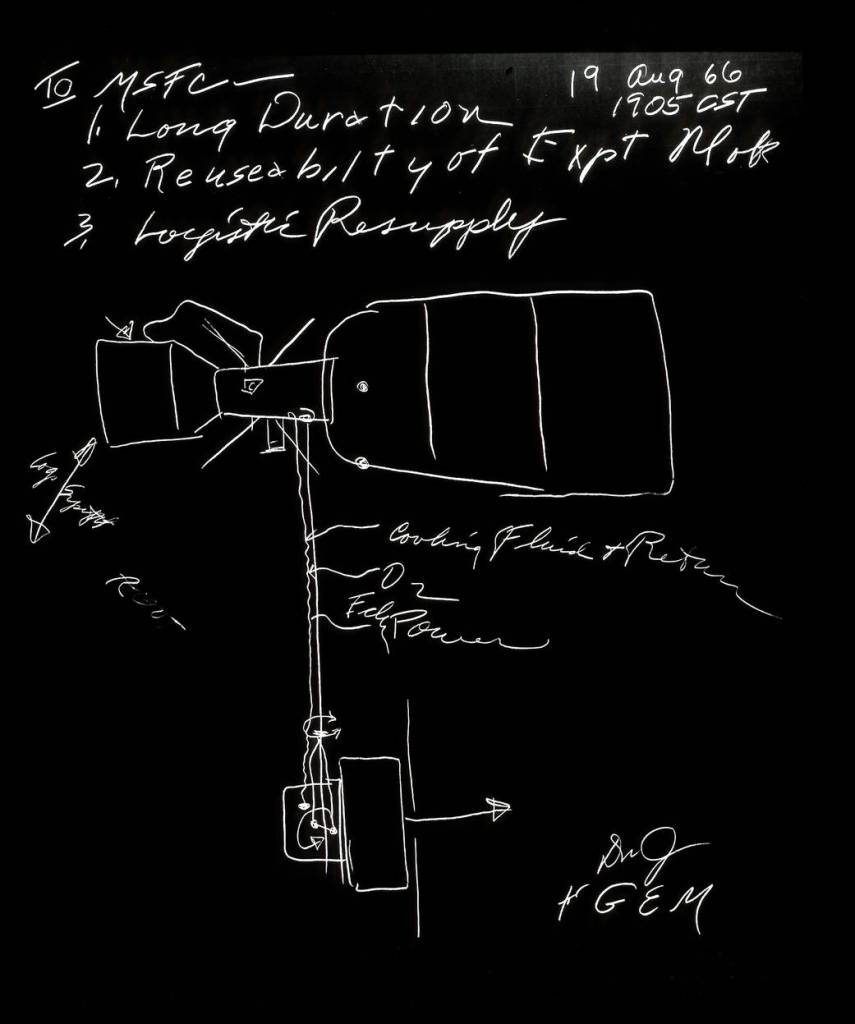 TO MSFC —
19 Aug 66
1905 CST
1. Long Duration
2. Reuseability of Expt Mod
3. Logistic Resupply
Cooling Fluid & Return
O2
Power
GEM